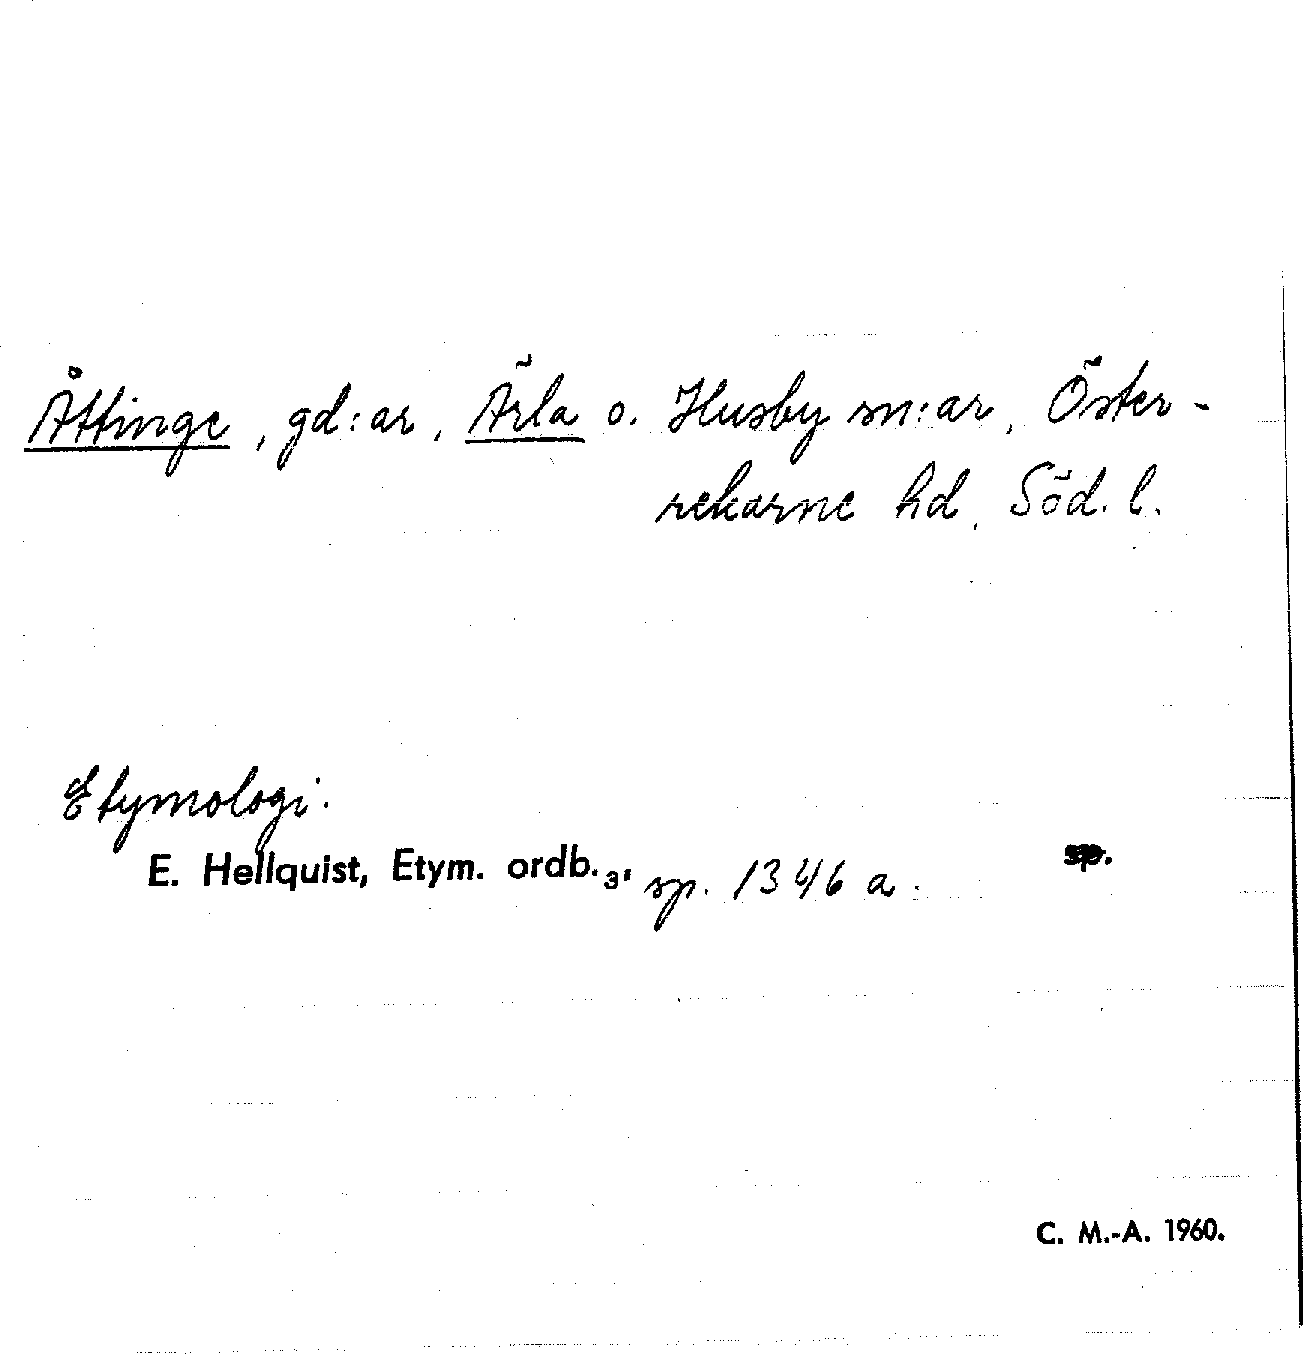 Åttinge, gd:ar, Ärla o. Husby sn:ar, Öster-
rekarne hd, Söd. l.
Etymologi.
E. Hellquist, Etym. ordb.3, sp. 1346 a. sp.
C. M.-A. 1960.